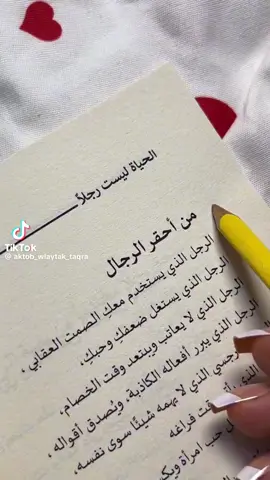 الحياة ليست رجلاً
من أحقر الرجال
الرجل الذي يستخدم معكِ الصمت العقابي،
الرجل الذي يستغل ضعفكِ وحبكِ،
الرجل الذي لا يعاتب ويبتعد وقت الخصام,
الرجل الذي يبرر أفعاله الكاذبة، وتُصدق أقواله،
الذي لا يهمه شيئًا سوى نفسه،
وقت فراغه
حب امرأة
TikTok
@aktob_wlaytak_taqra